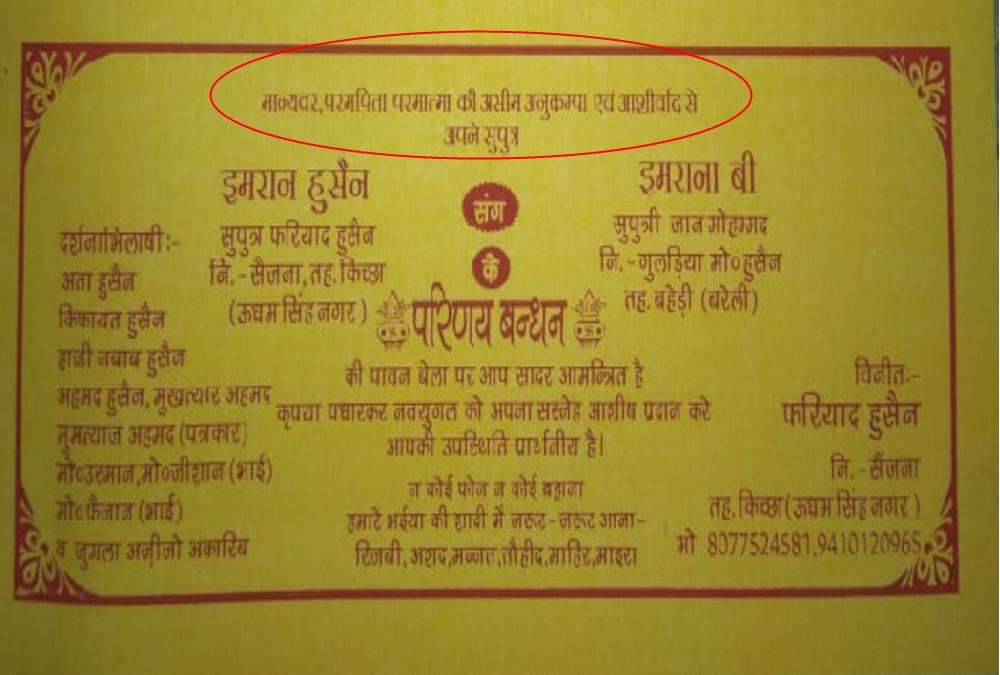 मान्यवर,परमपिता परमात्मा की असीम अनुकम्पा एवं आशीर्वाद से
अपने सुपुत्र
इमरान हुसैन
सुपुत्र फरियाद हुसैन
नि.-सैजना,तह.किच्छा
(ऊधम सिंह नगर)
संग
इमराना बी
सुपुत्री जान मोहम्मद
नि.-गुलड़िया मो०हुसैन
तह. बहेड़ी (बरेली)
के
परिणय बन्धन
की पावन बेला पर आप सादर आमन्त्रित है
कृपया पधारकर नवयुगल को अपना सस्नेह आशीष प्रदान करे
आपकी उपस्थिति प्रार्थनीय है।
न कोई फोन न कोई बहाना
हमारे भईया की शादी में जरूर-जरूर आना-
रिजबी,अशद,मन्नत,तौहीद,माहिर,माइरा
दर्शनाभिलाषी:-
अता हुसैन
किफायत हुसैन
हाजी नबाब हुसैन
अहमद हुसैन, मुखत्यार अहमद
मुमत्याज अहमद (पत्रकार)
मो०उस्मान,मो०जीशान (भाई)
मो०फैजान (भाई)
व जुमला अज़ीज़ो अकारिब
विनीत:-
फरियाद हुसैन
नि.-सैंजना
तह.किच्छा(ऊधम सिंह नगर)
मो 8077524581,9410120965